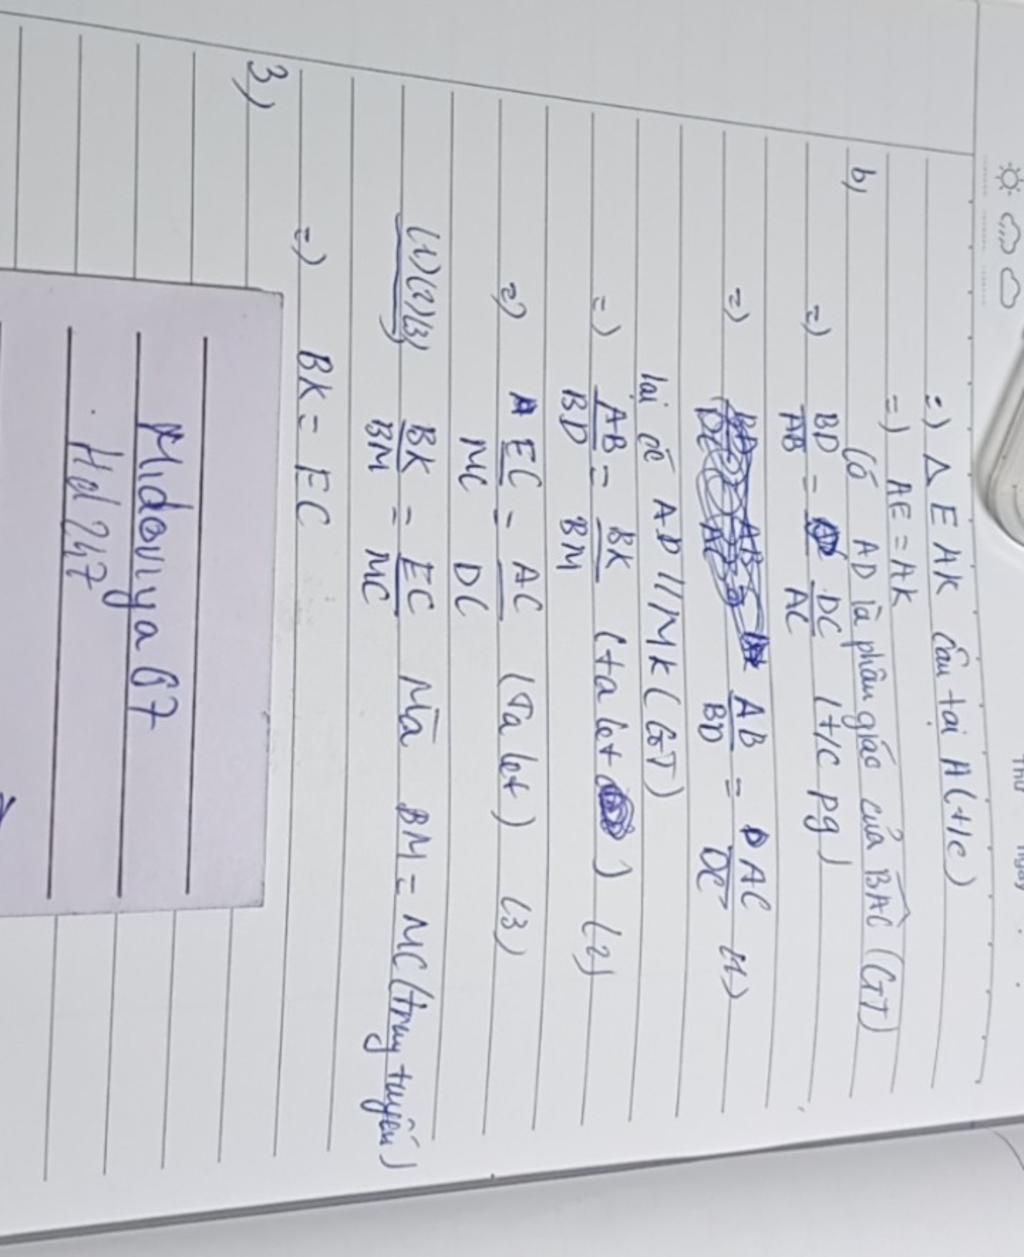 Thứ
Ngày
=) Δ EAK cân tại A (t/c)
=) AE = AK
b) Có AD là phân giác của BAC (GT)
=) BD/AB = DC/AC (t/c pg)
=) AB/BD = AC/DC (1)
lại có AD // MK (GT)
=) AB/BD = BK/BM (talet) (2)
=) EC/MC = AC/DC (Talet) (3)
(1)(2)(3) BK/BM = EC/MC Mà BM = MC (trung tuyến)
=) BK = EC
3)
Midoniya67
Hd247